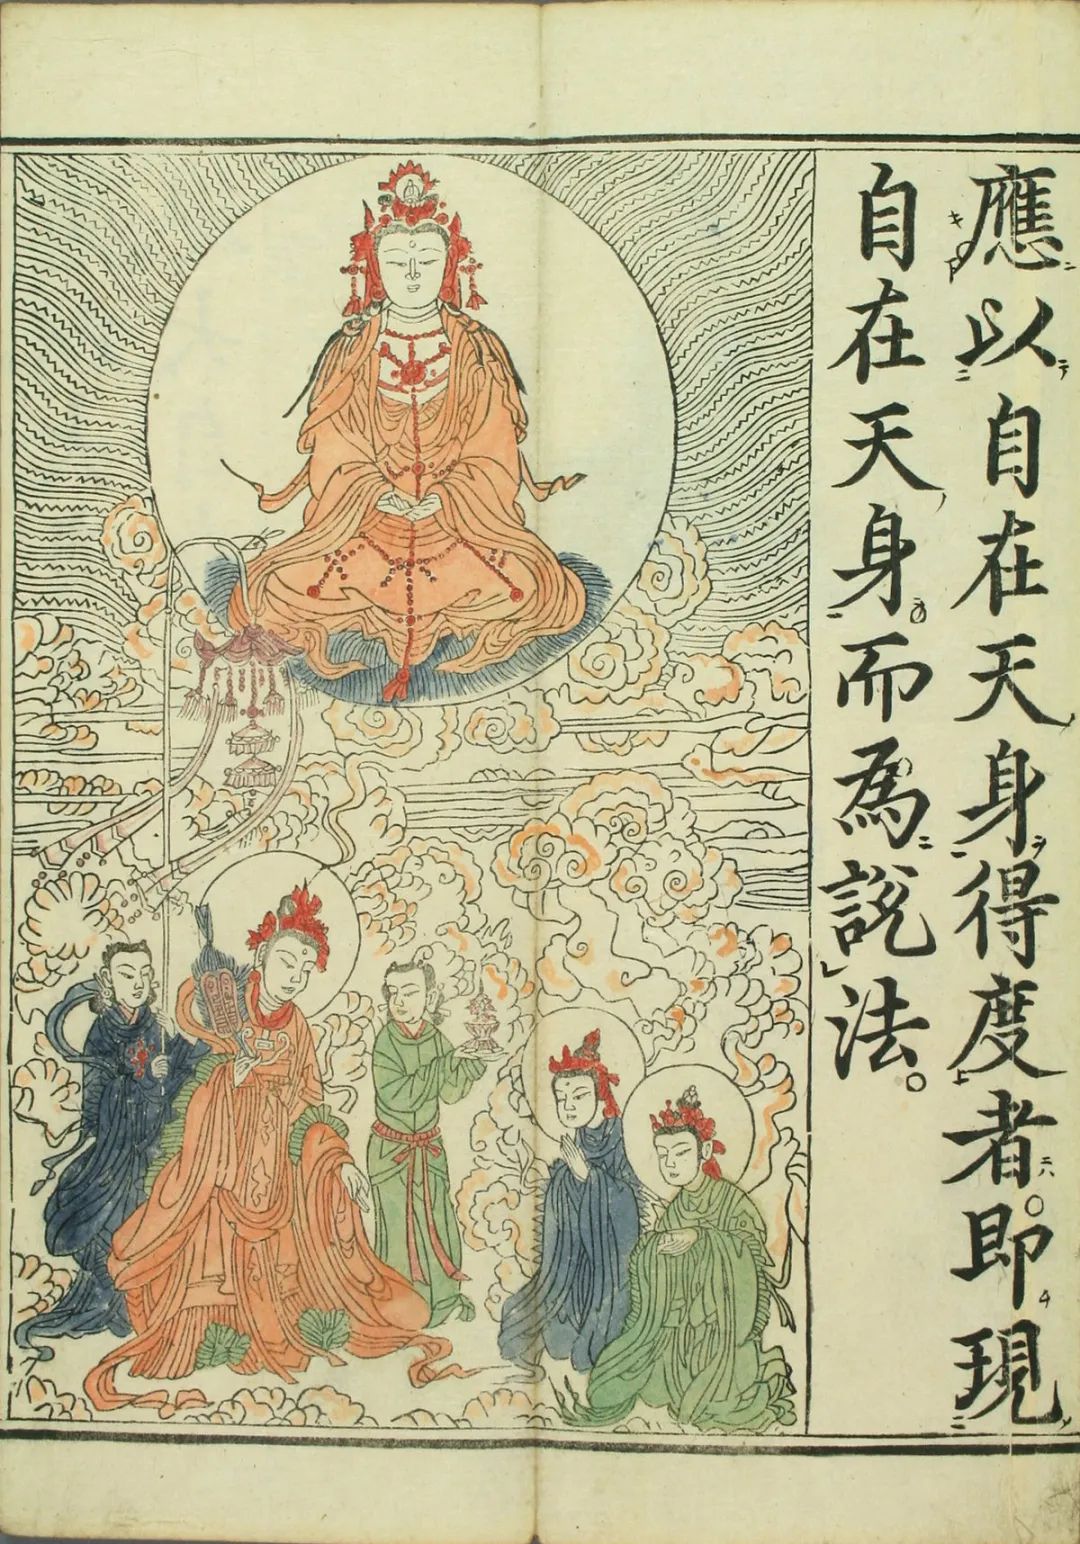 應以自在天身得度者。即現
自在天身而為說法。